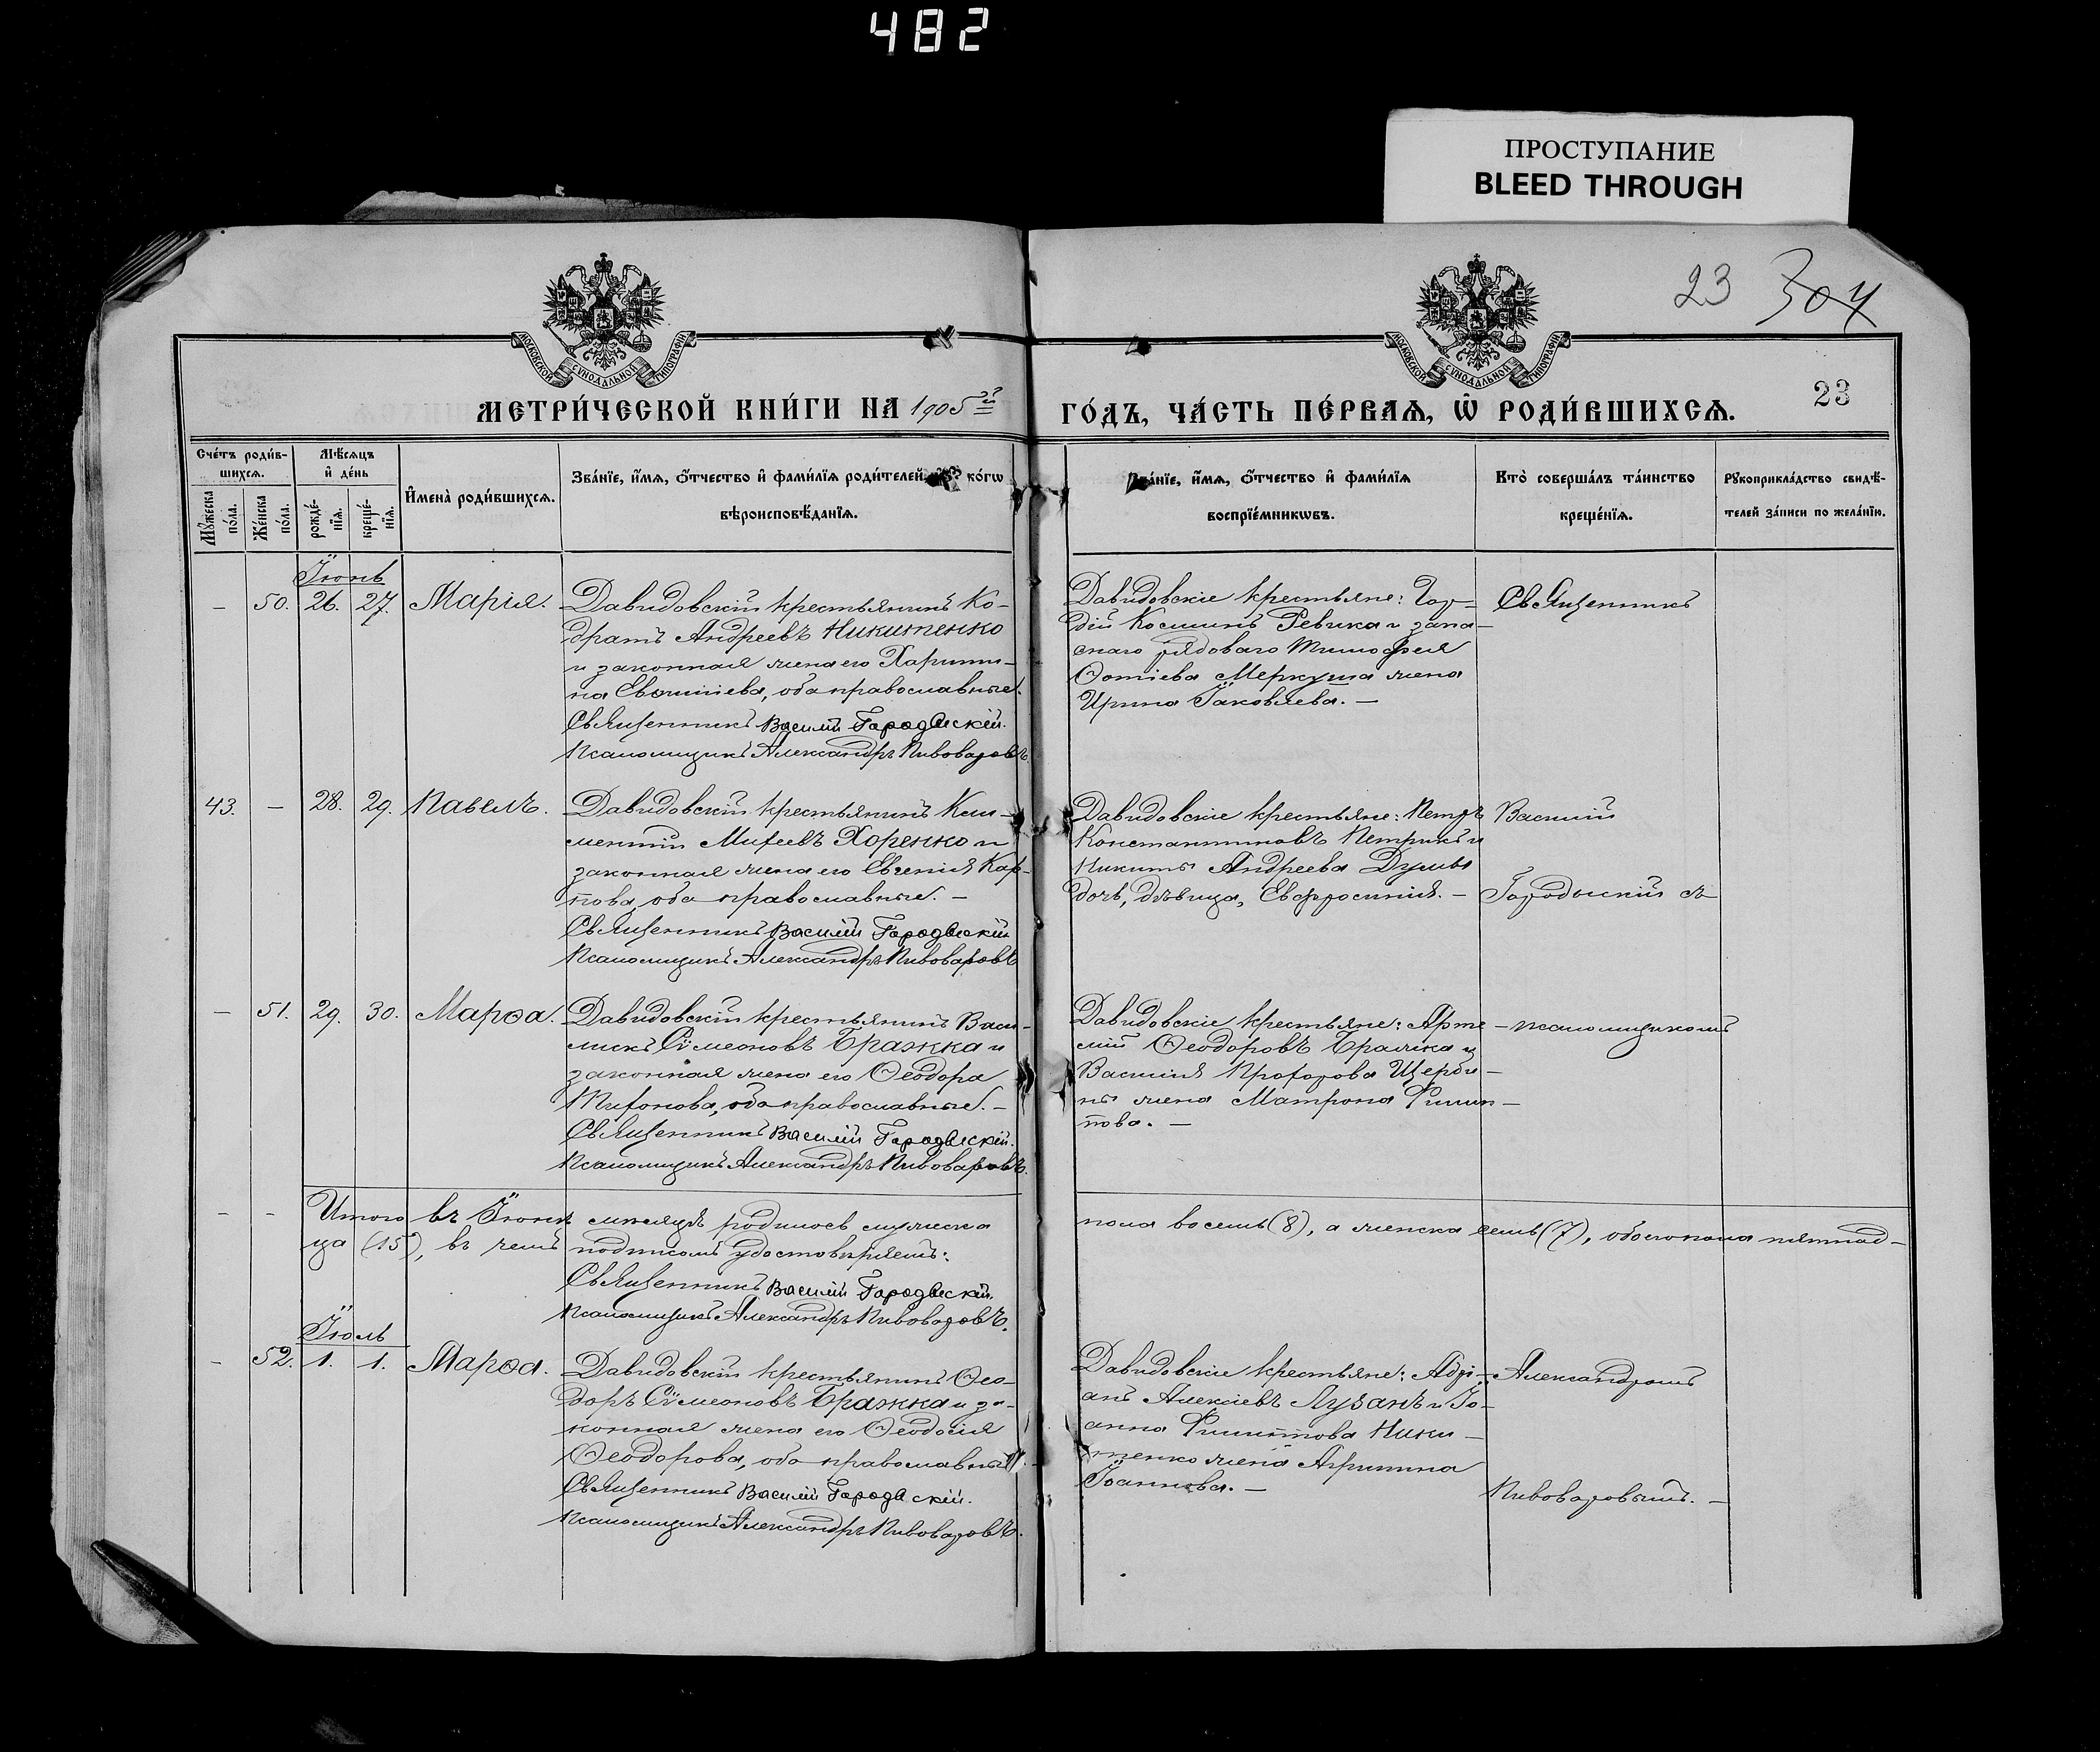 482
ПРОСТУПАНИЕ
BLEED THROUGH
23 304
МОСКОВСКОЙ СѴНОДАЛЬНОЙ ТИПОГРАФІИ
МОСКОВСКОЙ СѴНОДАЛЬНОЙ ТИПОГРАФІИ
23
МЕТРИ́ЧЕСКОЙ КНИ́ГИ НА 1905й
ГО́ДЪ, ЧА́СТЬ ПЕ́РВАѦ, Ѡ РОДИ́ВШИХСѦ.
Сче́тъ роди́в-
шихсѧ.
Мꙋ́жеска по́ла.
Же́нска по́ла.
Мѣ́сѧцъ
и҆ де́нь
рожде́-нїѧ.
креще́-нїѧ.
И҆мена̀ роди́вшихсѧ.
Зва́нїе, и҆́мѧ, ѻ҆́тчество и҆ фами́лїѧ роди́телей, и҆ ко́гѡ
вѣроисповѣ́данїѧ.
Зва́нїе, и҆́мѧ, ѻ҆́тчество и҆ фами́лїѧ
воспрїе́мникѡвъ.
Кто̀ соверша́лъ та́инство
креще́нїѧ.
Рꙋкоприкла́дство свидѣ́-
телей за́писи по жела́нїю.
Іюнь
– 50. 26. 27. Марія.
Давидовскій крестьянинъ Ко-
дратъ Андреевъ Никитенко
и законная жена его Харити-
на Евѳиміева, оба православные.
Священникъ Василій Городыскій.
Псаломщикъ Александръ Пивоваровъ.
Давидовскіе крестьяне: Гор-
дій Косминъ Ревика и запа-
снаго рядоваго Тимоѳея
Ѳотіева Меркуша жена
Ирина Іаковлева. –
Священникъ
43. – 28. 29. Павелъ.
Давидовскій крестьянинъ Кли-
ментій Михеевъ Хоренко и
законная жена его Евгенія Кар-
пова, оба православные. –
Священникъ Василій Городыскій
Псаломщикъ Александръ Пивоваровъ
Давидовскіе крестьяне: Петръ
Константиновъ Петрикъ и
Никиты Андреева Думы
дочь, дѣвица, Евфросинія. –
Василій
Городыскій съ
– 51. 29. 30. Марѳа.
Давидовскій крестьянинъ Васи-
лискъ Сѵмеоновъ Бражка и
законная жена его Ѳеодора
Тихонова, оба православные. –
Священникъ Василій Городыскій.
Псаломщикъ Александръ Пивоваровъ.
Давидовскіе крестьяне: Арте-
мій Ѳеодоровъ Бражка и
Василія Прохорова Щерби-
ны жена Матрона Филип-
пова. –
псаломщикомъ
– – Итого въ Іюнѣ мѣсяцѣ родилось мужеска
пола восемь (8), а женска семь (7), обоего пола пятнад-
ца (15), въ чемъ подписомъ удостовѣряемъ:
Священникъ Василій Городыскій.
Псаломщикъ Александръ Пивоваровъ.
Іюль
– 52. 1. 1. Марѳа.
Давидовскій крестьянинъ Ѳео-
доръ Сѵмеоновъ Бражка и за-
конная жена его Ѳеодосія
Ѳеодорова, оба православные.
Священникъ Василій Городыскій.
Псаломщикъ Александръ Пивоваровъ.
Давидовскіе крестьяне: Адрі-
анъ Алексіевъ Лузанъ и Іо-
анна Филиппова Ники-
тенко жена Агрипина
Іоаннова. –
Александромъ
Пивоваровымъ. –